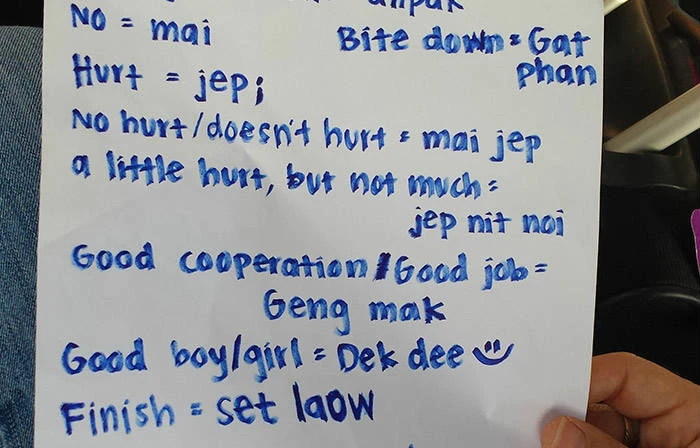 No = mai
Bite down = Gat
phan
Hurt = jep;
No hurt/doesn't hurt = mai jep
a little hurt, but not much =
jep nit noi
Good cooperation/Good job =
Geng mak
Good boy/girl = Dek dee
Finish = set laow